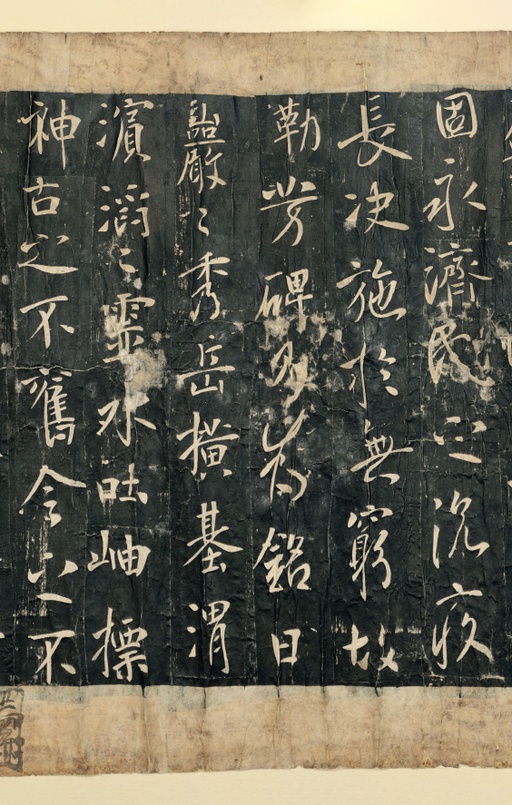 固永濟民之沉疚
長決施於無窮故
勒芳碑乃為銘曰
巖々秀岳橫基渭
濱滔々靈水吐岫標
神古之不舊今之不